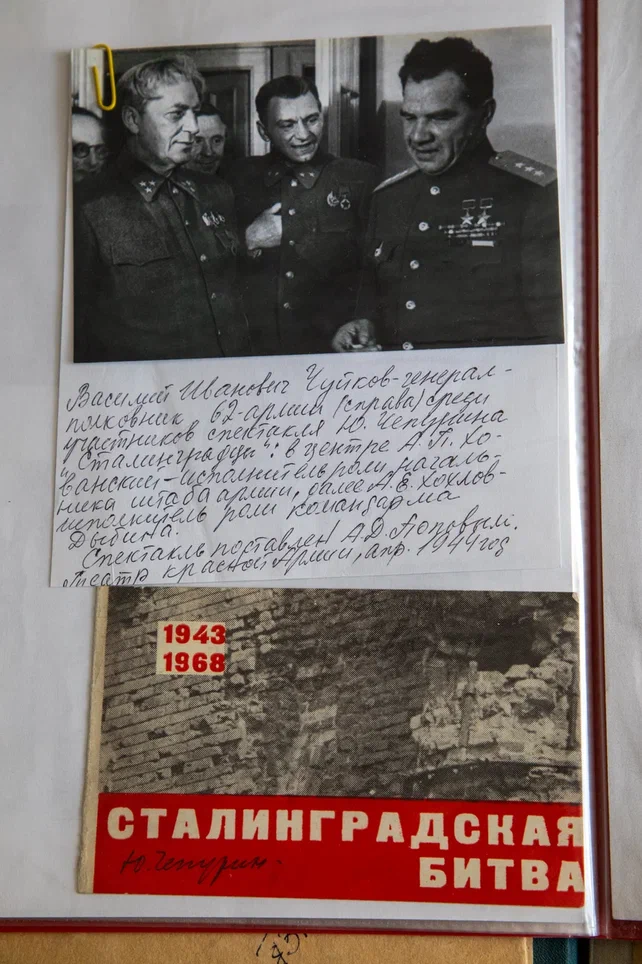 Василий Иванович Чуйков-генерал-
полковник 62-армии (справа) среди
участников спектакля Ю. Чепурина
„Сталинградцы“: в центре А.П. Хо-
ванский-исполнитель роли началь-
ника штаба армии, далее А.Е. Хохлов-
исполнитель роли командарма
Дыбина.
Спектакль поставлен А.Д. Поповым.
Театр красной Армии, апр. 1944 год
1943
1968
СТАЛИНГРАДСКАЯ
Ю. Чепурин
БИТВА